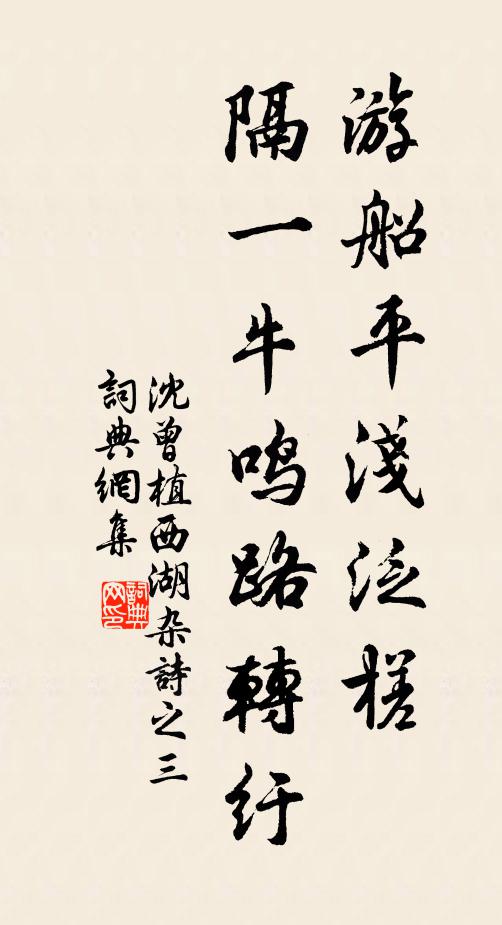 游船平淺泛槎
隔一牛鸣路轉紆
沈曾植西湖杂詩之三
詞典網集
詞典
网印